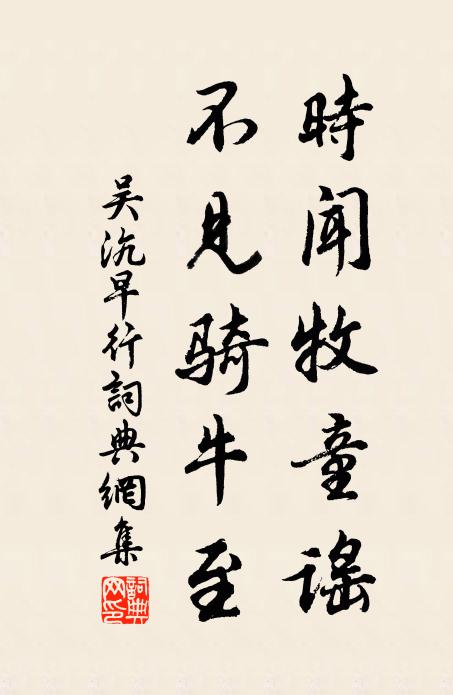 時聞牧童謠
不見騎牛至
吳沉早行詞典網集
詞典網印